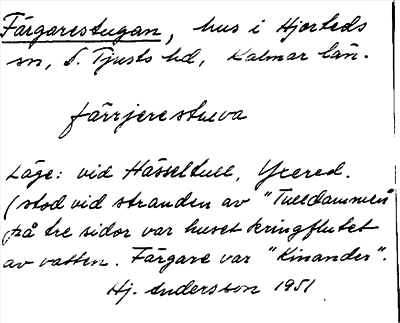 Färgarestugan, hus i Hjorteds
sn, S. Tjusts hd, Kalmar län.
färrjerestuva
Läge: vid Hässeltull, Ycered.
(stod vid stranden av "Tulldammen"
på tre sidor var huset kringflutet
av vatten. Färgare var "Kinander".
Hj. Andersson 1951